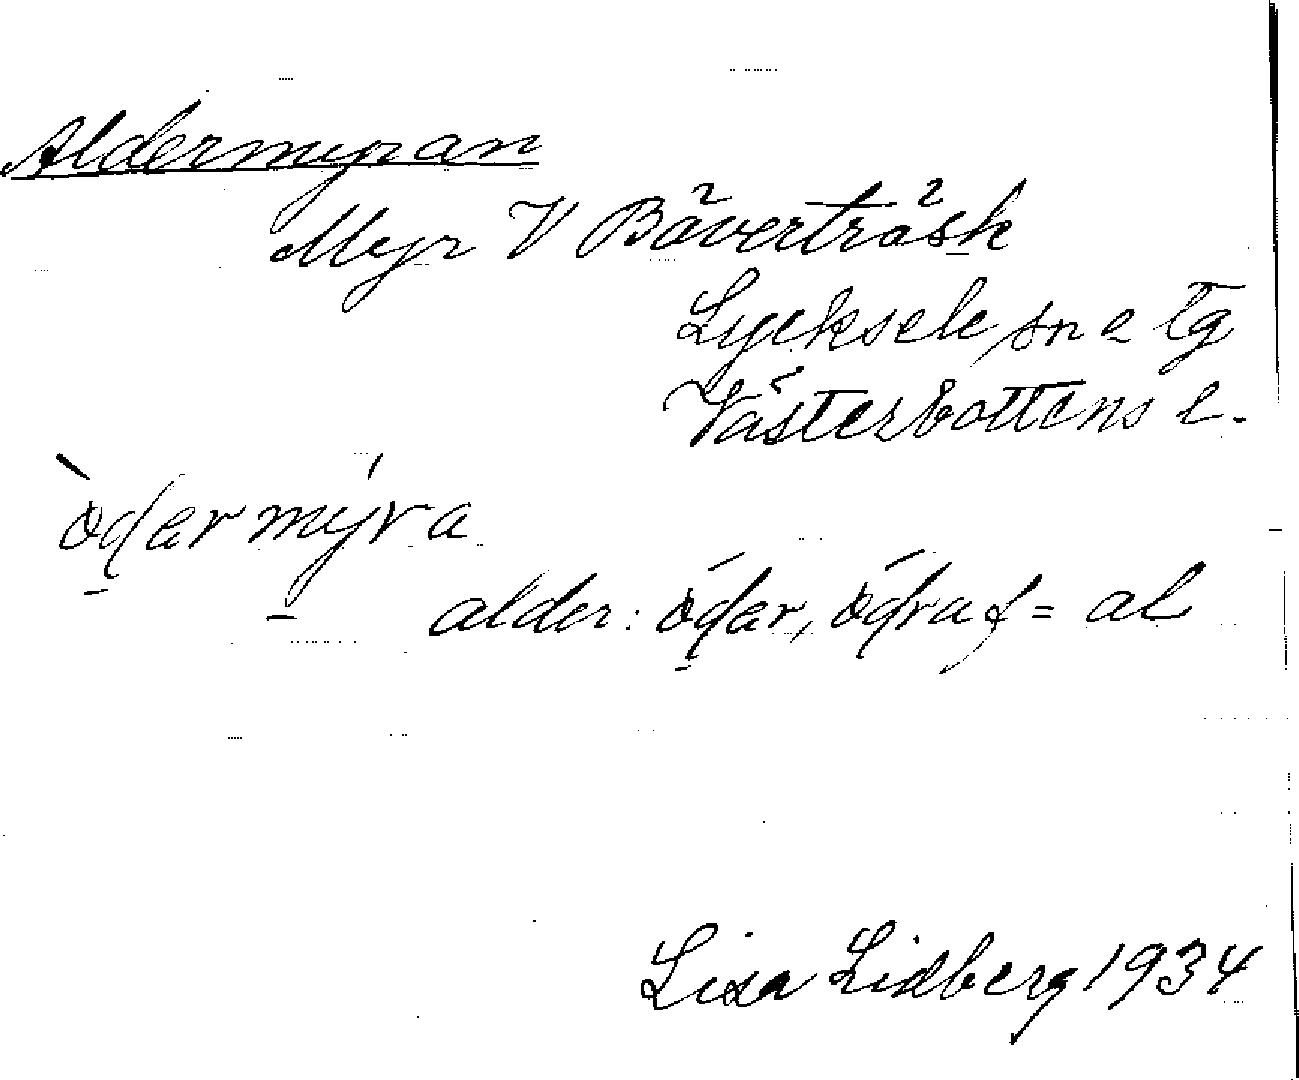 Aldermyran
Myr V Bäverträsk
Lycksele sn o tg
Västerbottens l.
òdarmýra
alder: ódar, ódra f = al
Lisa Lidberg 1934